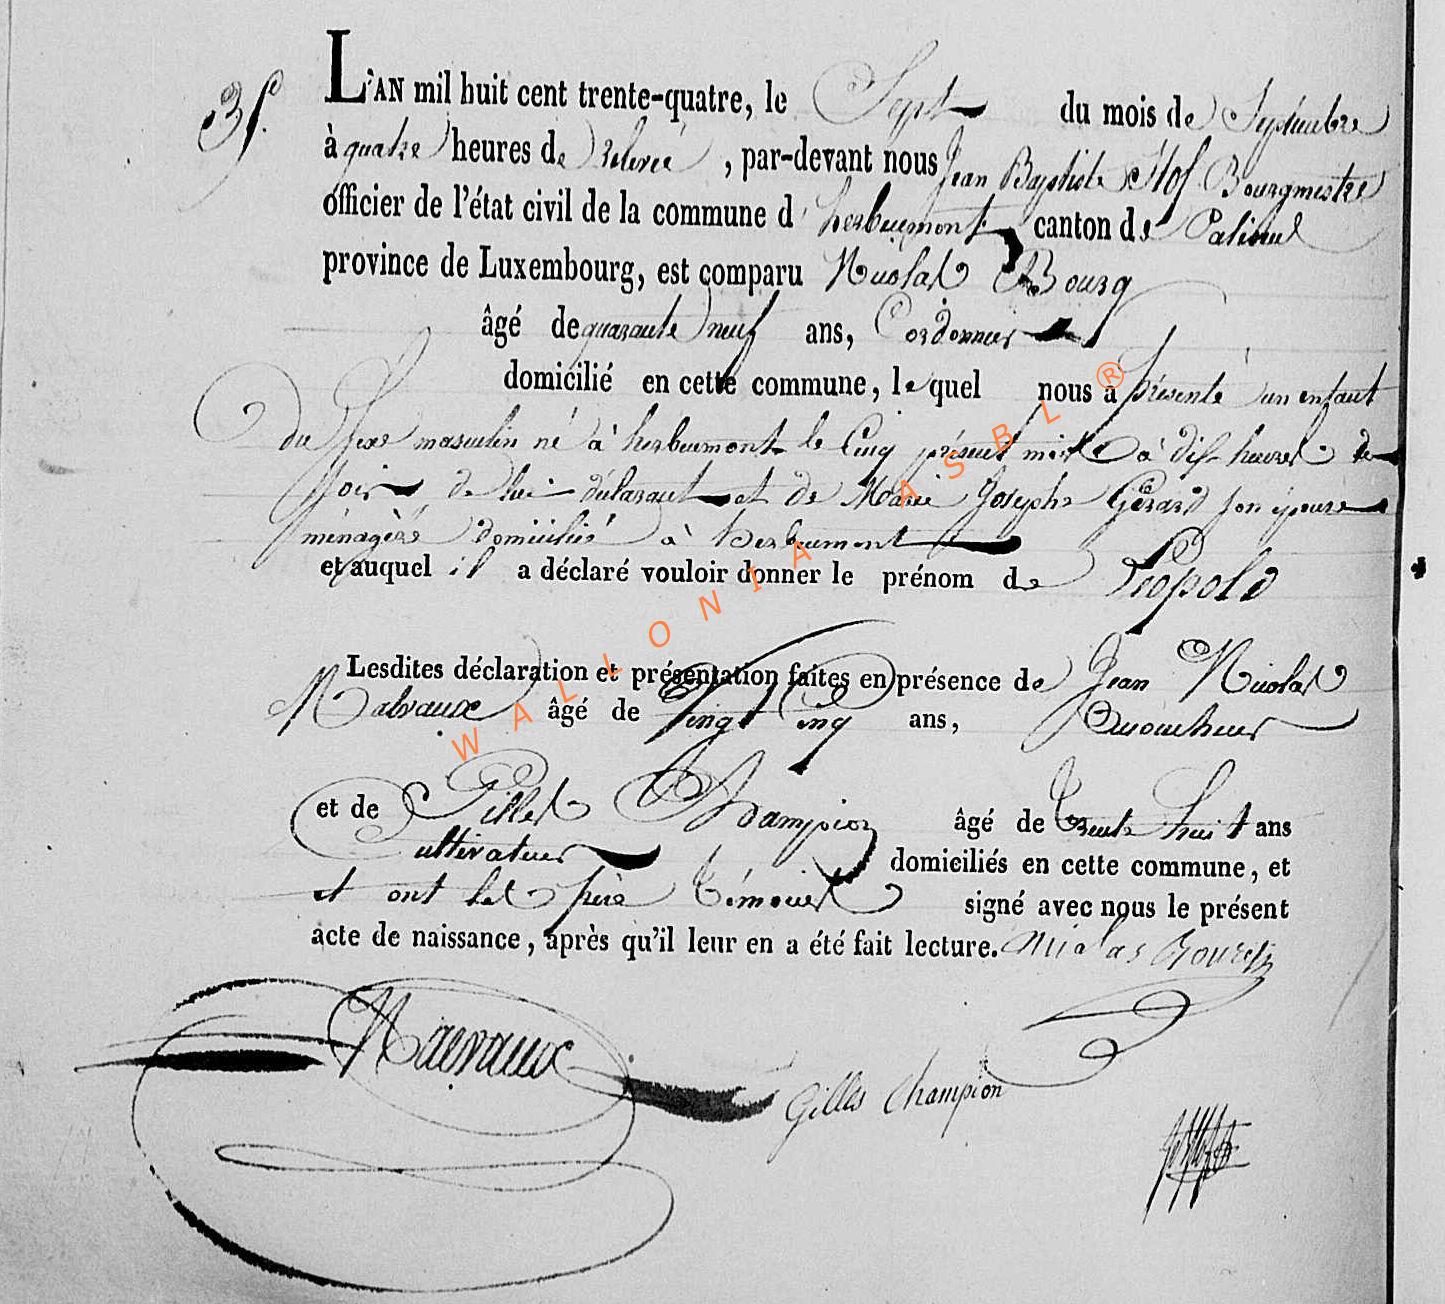 35.
L'AN mil huit cent trente-quatre, le Sept du mois de Septembre
à quatre heures de relevée, par-devant nous Jean Baptiste Bourgmestre
officier de l'état civil de la commune d'herbeumont canton de Paliseul
province de Luxembourg, est comparu Nicolas Bourg
âgé de quarante neuf ans, Cordonnier
domicilié en cette commune, lequel nous a présenté un enfant
du sexe masculin né à herbeumont le Cinq présent mois à dix heures de
soir de lui déclarant et de Marie Josephe Gérard son épouse
ménagère domiciliée à herbeumont
et auquel il a déclaré vouloir donner le prénom de Léopold
Lesdites déclaration et présentation faites en présence de Jean Nicolas
Malvaux âgé de Vingt Cinq ans,
et de Gilles Champion âgé de trente huit ans
Cultivateur domiciliés en cette commune, et
et ont les père témoins signé avec nous le présent
acte de naissance, après qu'il leur en a été fait lecture. Nicolas Bourg
Malvaux
Gilles Champion
WALLONIA ASBL ®